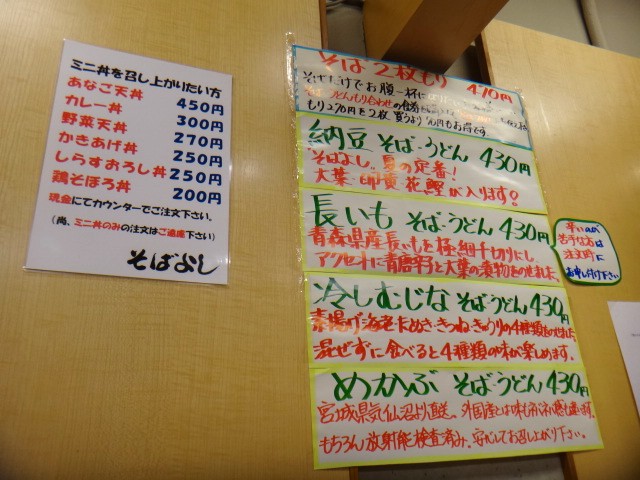 ミニ丼を召し上がりたい方
あなご天丼 450円
カレー丼 300円
野菜天丼 270円
かきあげ丼 250円
しらすおろし丼 250円
鶏そぼろ丼 200円
現金にてカウンターでご注文下さい。
(尚、ミニ丼のみの注文はご遠慮下さい)
そばよし
そば2枚もり 470円
そばだけでお腹一杯に
もり270円を2枚買うより70円もお得です。
納豆 そば・うどん 430円
「そばよし」夏の定番!
大葉・卵黄・花鰹が入ります!
長いも そば・うどん 430円
青森県産長いもを極細千切りにし、
アクセントに青唐辛子と大葉の漬物をのせました。
辛いのが
苦手な方は
注文時に
お申し付け下さい
冷しむじな そば・うどん 430円
素揚げ海老・たぬき・きつね・きゅうりの4種類をのせました。
混ぜずに食べると4種類の味が楽しめます。
めかぶ そば・うどん 430円
宮城県気仙沼より直送。外国産とは味も
もちろん放射能検査済み、安心してお召し上がり下さい。